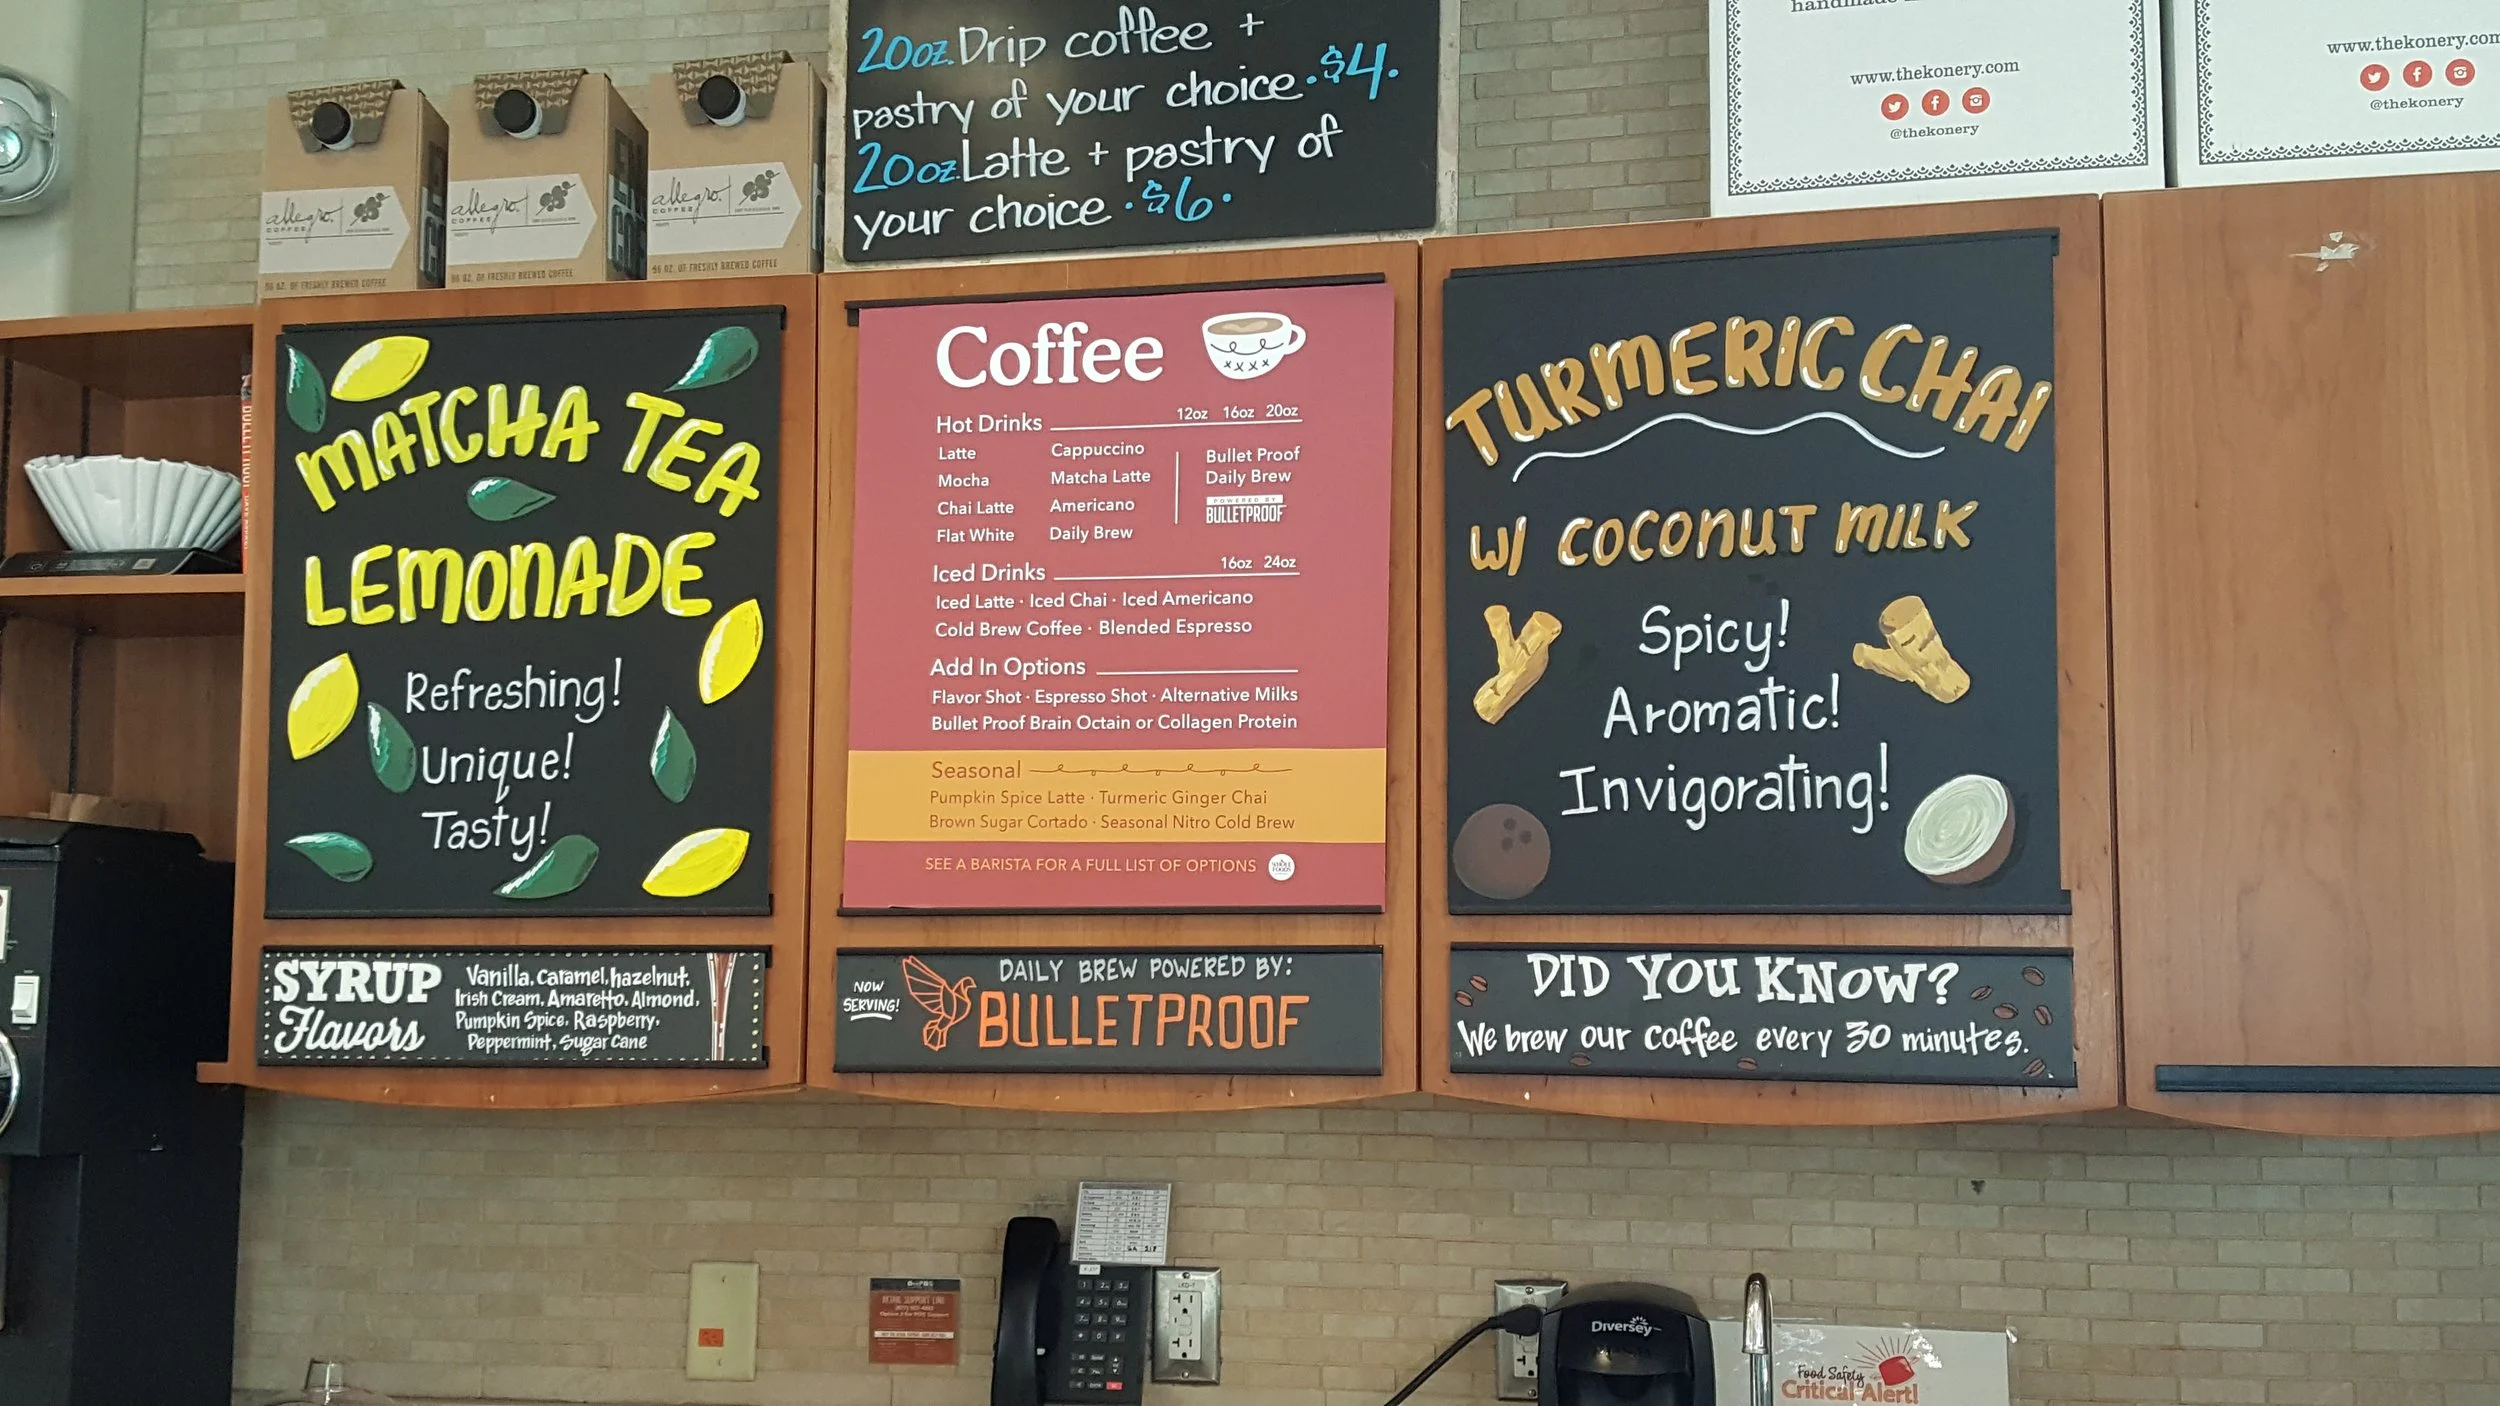 20oz. Drip coffee +
pastry of your choice · $4.
20oz. Latte + pastry of
your choice · $6 ·
www.thekonery.com
@thekonery
www.thekonery.com
@thekonery
allegro
COFFEE
96 OZ. OF FRESHLY BREWED COFFEE
allegro
COFFEE
96 OZ. OF FRESHLY BREWED COFFEE
allegro
COFFEE
96 OZ. OF FRESHLY BREWED COFFEE
MATCHA TEA
LEMONADE
Refreshing!
Unique!
Tasty!
SYRUP
Flavors
Vanilla, Caramel, hazelnut,
Irish Cream, Amaretto, Almond,
Pumpkin Spice, Raspberry,
Peppermint, Sugar Cane
Coffee
Hot Drinks 12oz 16oz 20oz
Latte Cappuccino
Mocha Matcha Latte
Chai Latte Americano
Flat White Daily Brew
Bullet Proof
Daily Brew
POWERED BY
BULLETPROOF
Iced Drinks 16oz 24oz
Iced Latte · Iced Chai · Iced Americano
Cold Brew Coffee · Blended Espresso
Add In Options
Flavor Shot · Espresso Shot · Alternative Milks
Bullet Proof Brain Octain or Collagen Protein
Seasonal
Pumpkin Spice Latte · Turmeric Ginger Chai
Brown Sugar Cortado · Seasonal Nitro Cold Brew
SEE A BARISTA FOR A FULL LIST OF OPTIONS
WHOLE
FOODS
NOW
SERVING!
DAILY BREW POWERED BY:
BULLETPROOF
TURMERIC CHAI
W/ COCONUT MILK
Spicy!
Aromatic!
Invigorating!
DID YOU KNOW?
We brew our coffee every 30 minutes.
RETAIL SUPPORT LINE
Diversey
Food Safety
Critical Alert!